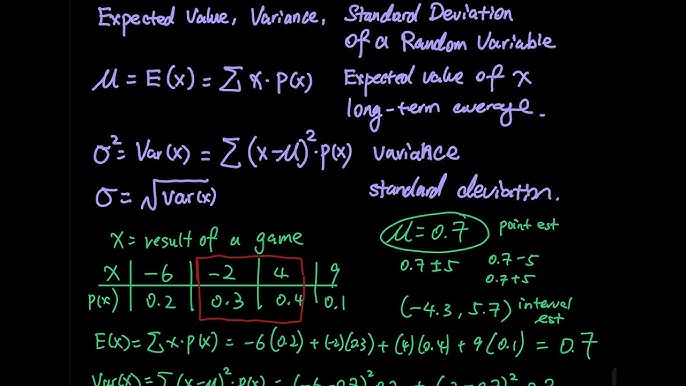 Expected Value, Variance, Standard Deviation
of a Random Variable
μ = E(x) = ∑ x · p(x) Expected value of x
long-term average.
σ² = Var(x) = ∑ (x-μ)² · p(x) variance
σ = √Var(x) standard deviation.
x = result of a game
μ = 0.7 point est
0.7 ± 5 0.7 - 5
0.7 + 5
x | -6 | -2 | 4 | 9
p(x) | 0.2 | 0.3 | 0.4 | 0.1
(-4.3, 5.7) interval
est
E(x) = ∑ x · p(x) = -6(0.2) + (-2)(0.3) + (4)(0.4) + 9(0.1) = 0.7
Var(x) = ∑ (x-μ)² · p(x) = (-6-0.7)²